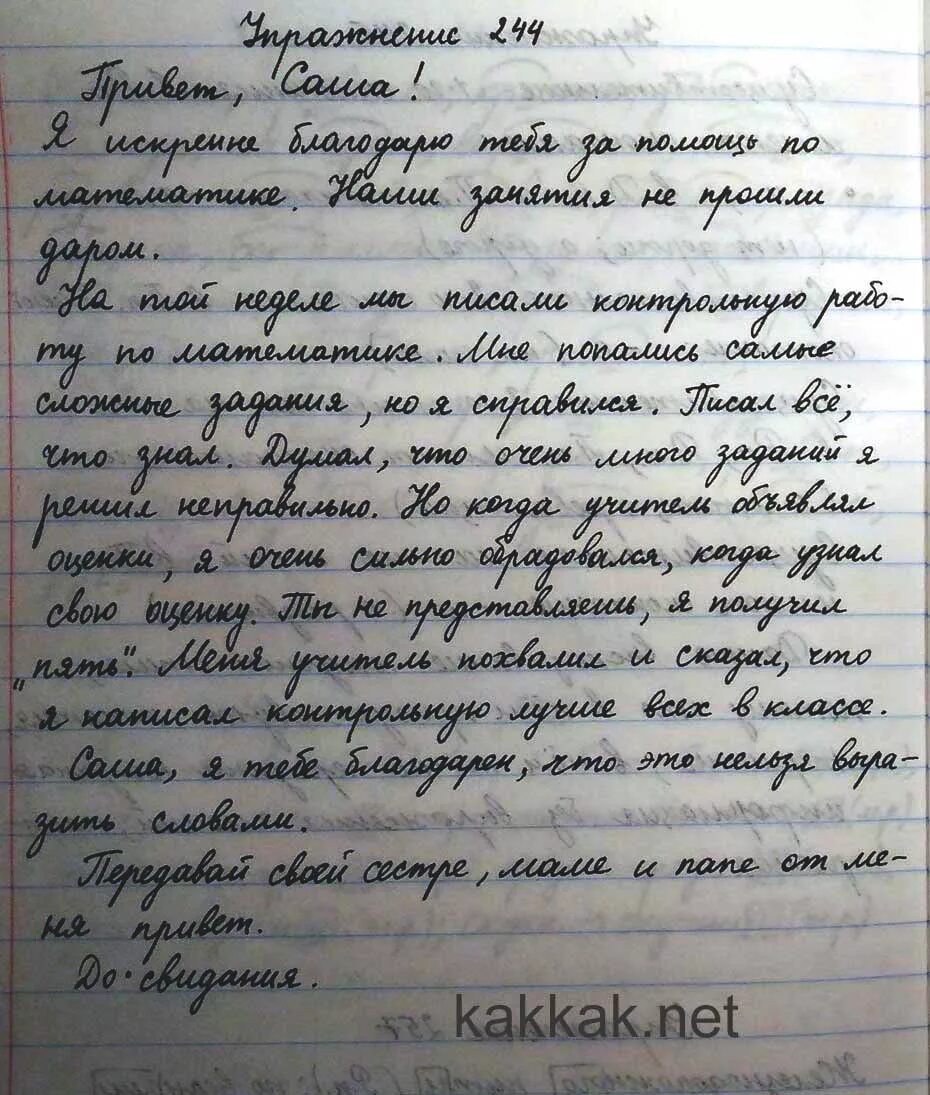 Упражнение 244
Привет, Саша!
Я искренне благодарю тебя за помощь по
математике. Наши занятия не прошли
даром.
На той неделе мы писали контрольную рабо-
ту по математике. Мне попались самые
сложные задания, но я справился. Писал всё,
что знал. Думал, что очень много заданий я
решил неправильно. Но когда учитель объявлял
оценки, я очень сильно обрадовался, когда узнал
свою оценку. Ты не представляешь, я получил
„пять". Меня учитель похвалил и сказал, что
я написал контрольную лучше всех в классе.
Саша, я тебе благодарен, что это нельзя выра-
зить словами.
Передавай своей сестре, маме и папе от ме-
ня привет.
До свидания.
kakkak.net